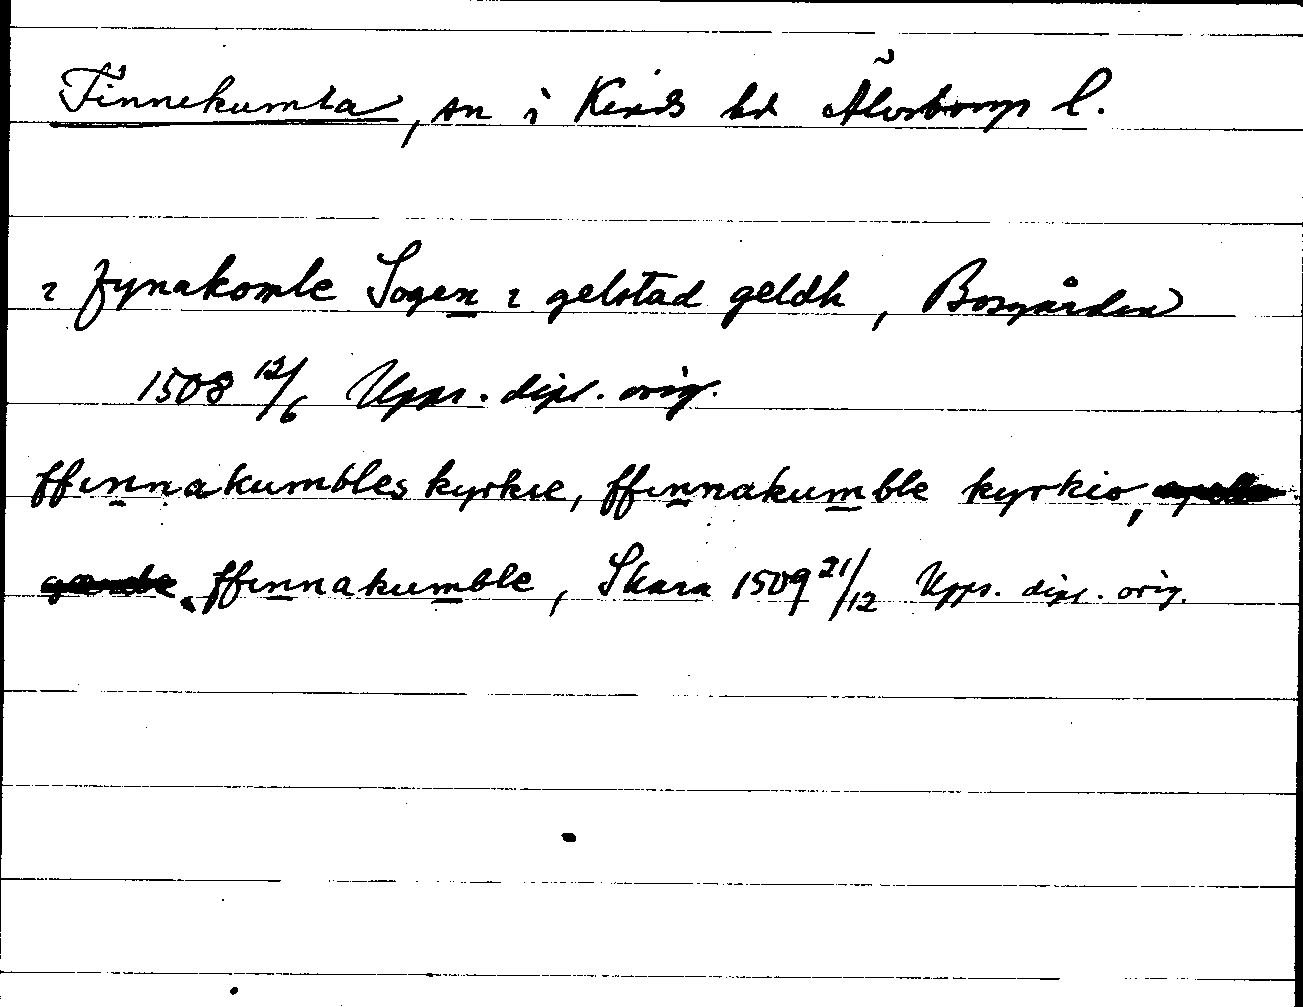 Finnekumla, sn i Kinds hd Älvsborgs l.
ı fynakomle Sogen ı gelstad geldh, Bosgården
1508 12/6 Upps. dipl. orig.
ffınnakumbles kyrkıe, ffınnakumble kyrkio,
ffınnakumble, Skara 1509 21/12 Upps. dipl. orig.